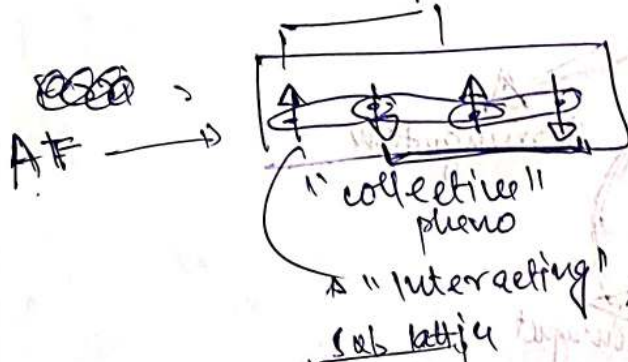 AF
"collective"
pheno
"Interacting"
sub lattice